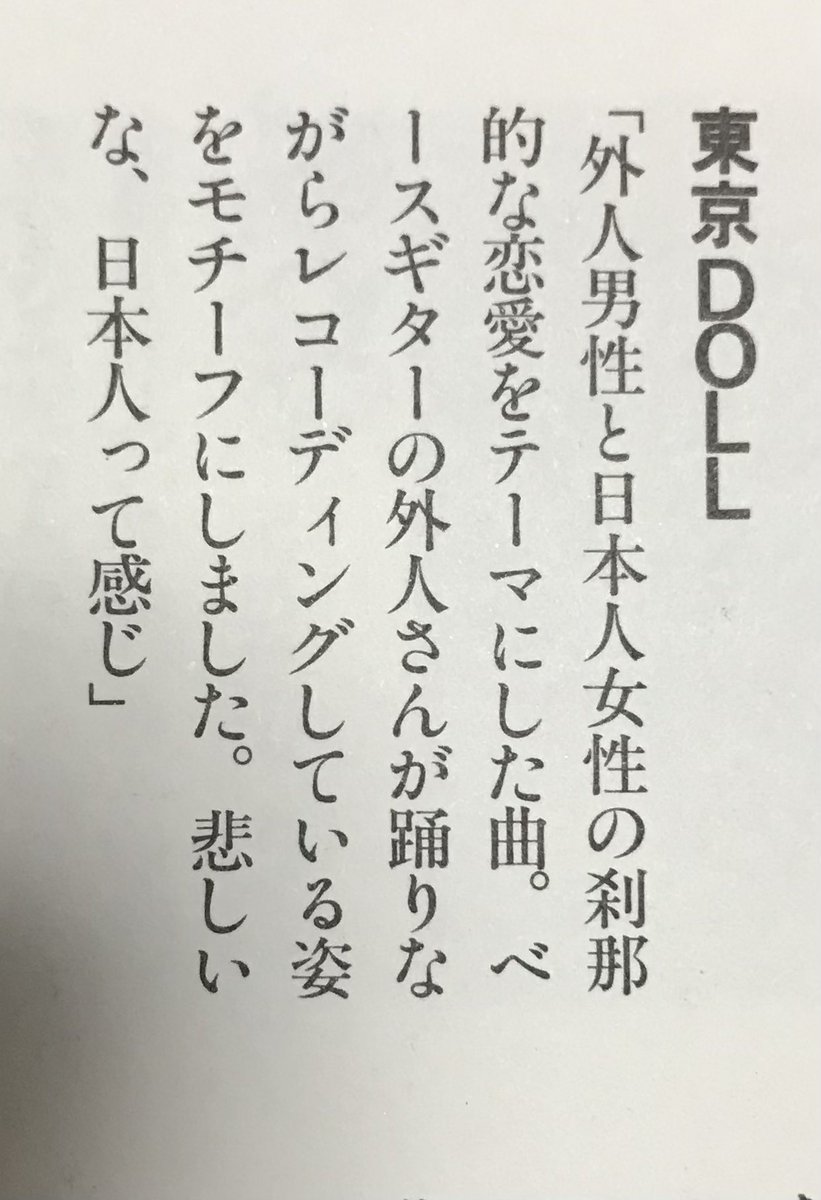 東京DOLL
「外人男性と日本人女性の刹那
的な恋愛をテーマにした曲。ベ
ースギターの外人さんが踊りな
がらレコーディングしている姿
をモチーフにしました。悲しい
な、日本人って感じ」